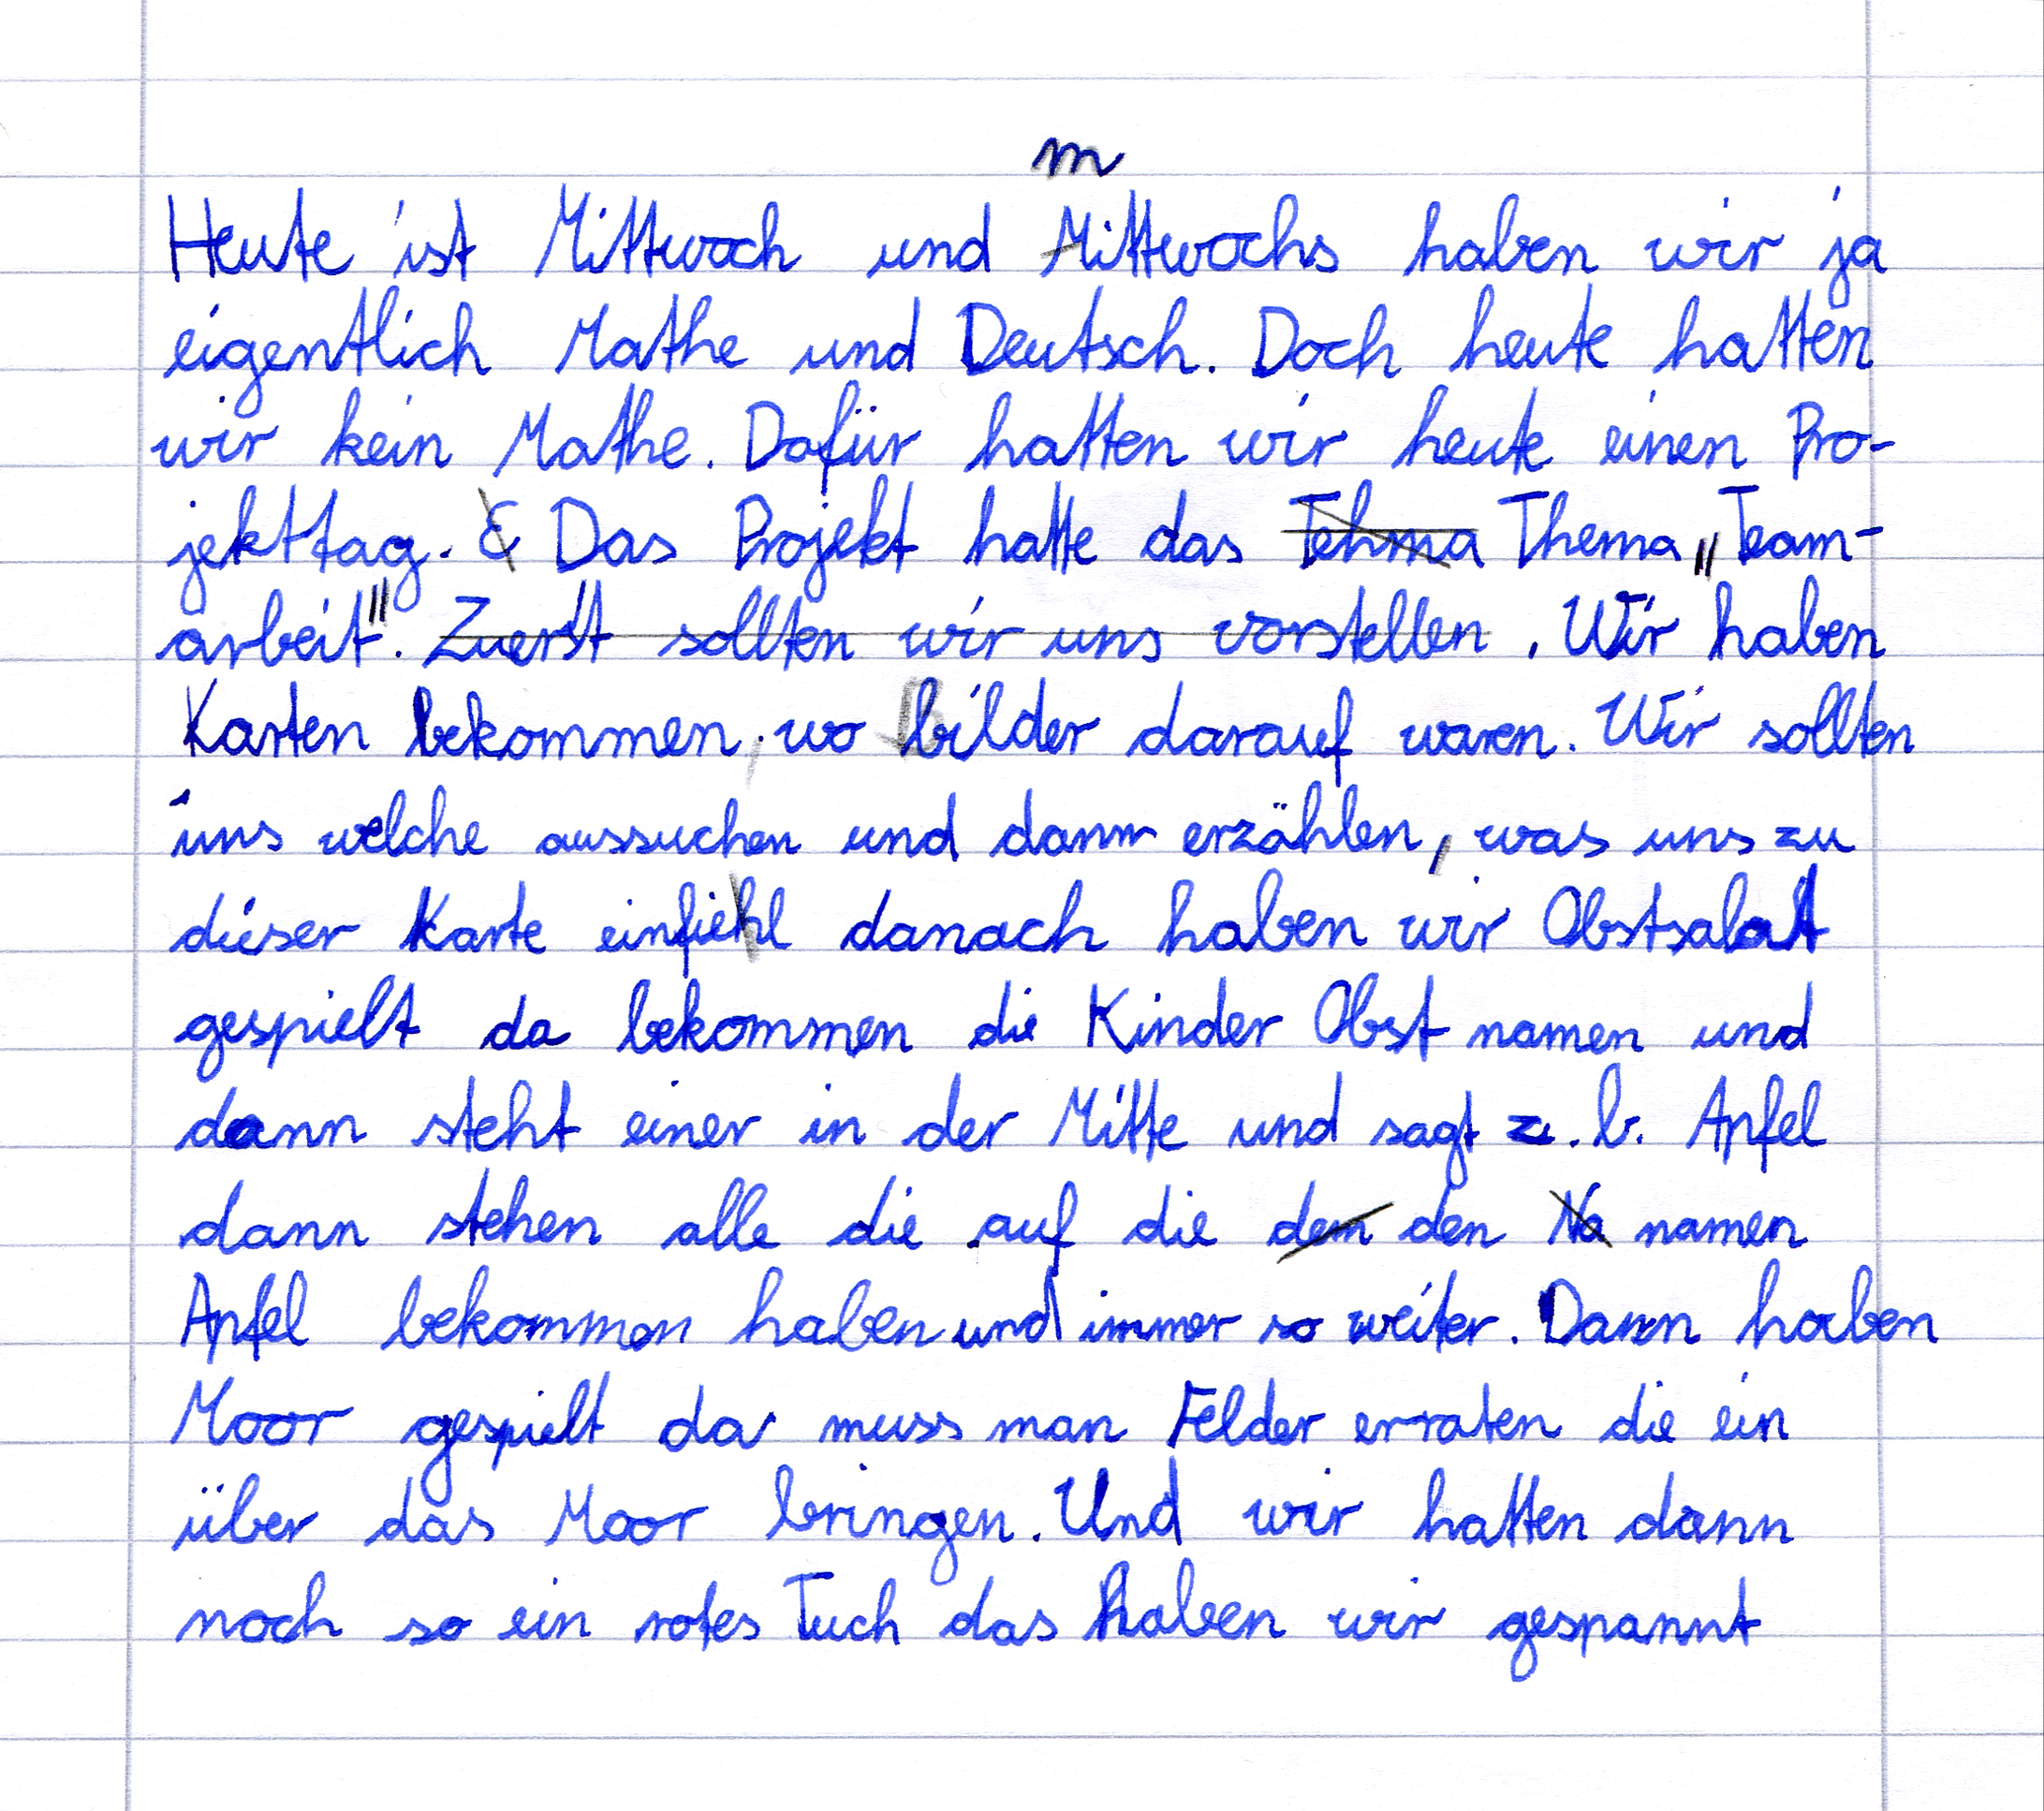 m
Heute ist Mittwoch und Mittwochs haben wir ja
eigentlich Mathe und Deutsch. Doch heute hatten
wir kein Mathe. Dafür hatten wir heute einen Pro-
jekttag. & Das Projekt hatte das Tehma Thema „Team-
arbeit". Zuerst sollten wir uns vorstellen. Wir haben
Karten bekommen, wo Bilder darauf waren. Wir sollten
uns welche aussuchen und dann erzählen, was uns zu
dieser Karte einfiehl danach haben wir Obstsalat
gespielt da bekommen die Kinder Obst namen und
dann steht einer in der Mitte und sagt z. b. Apfel
dann stehen alle die auf die dem den Na namen
Apfel bekommen haben und immer so weiter. Dann haben
Moor gespielt da muss man Felder erraten die ein
über das Moor bringen. Und wir hatten dann
noch so ein rotes Tuch das haben wir gespannt